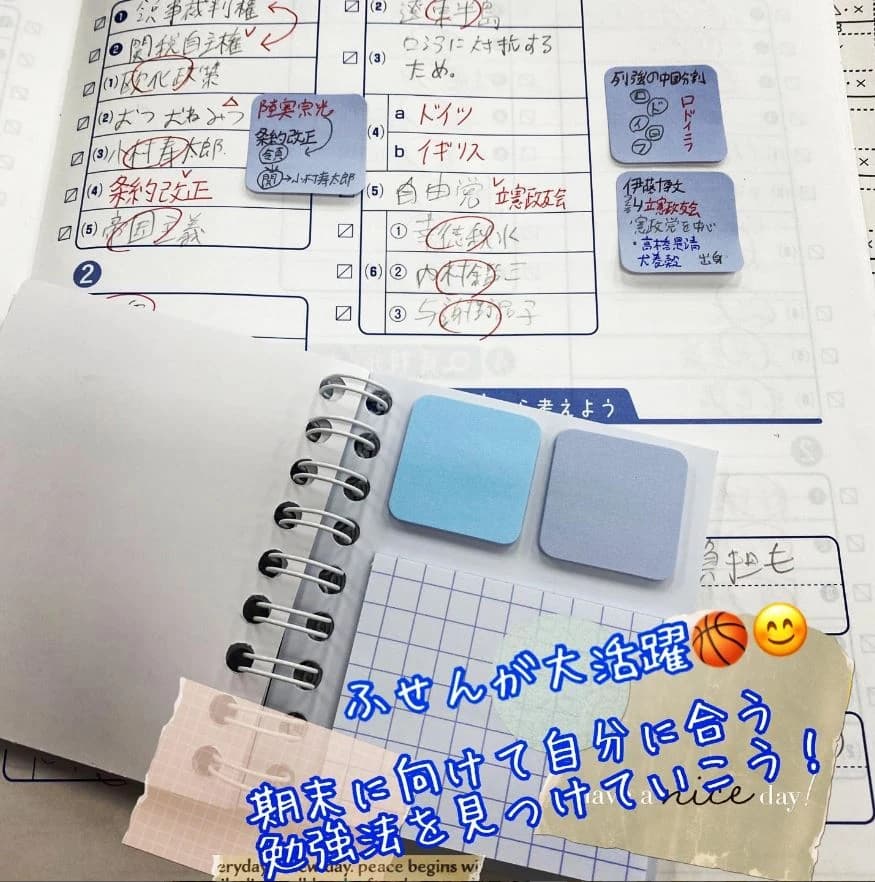 ❶ 領事裁判権
❷ 関税自主権
(1) 欧化政策
(2)
(3) 小村寿太郎
(4) 条約改正
(5) 帝国主義
陸奥宗光
条約改正
関→小村寿太郎
2
(2) 遼東半島
(3) ロシアに対抗する
ため。
(4)
a ドイツ
b イギリス
(5) 自由党 立憲政友会
(6)
① 幸徳秋水
② 内村鑑三
③ 与謝野晶子
列強の中国分割
ロ
ド
イ
フ
ロドイニフ
伊藤博文
立憲政友会
憲政党を中心
・高橋是清
犬養毅 出身
考えよう
2
負担も
ふせんが大活躍🏀😊
期末に向けて自分に合う
勉強法を見つけていこう！
have a nice day!
everyday new day. peace begins wi